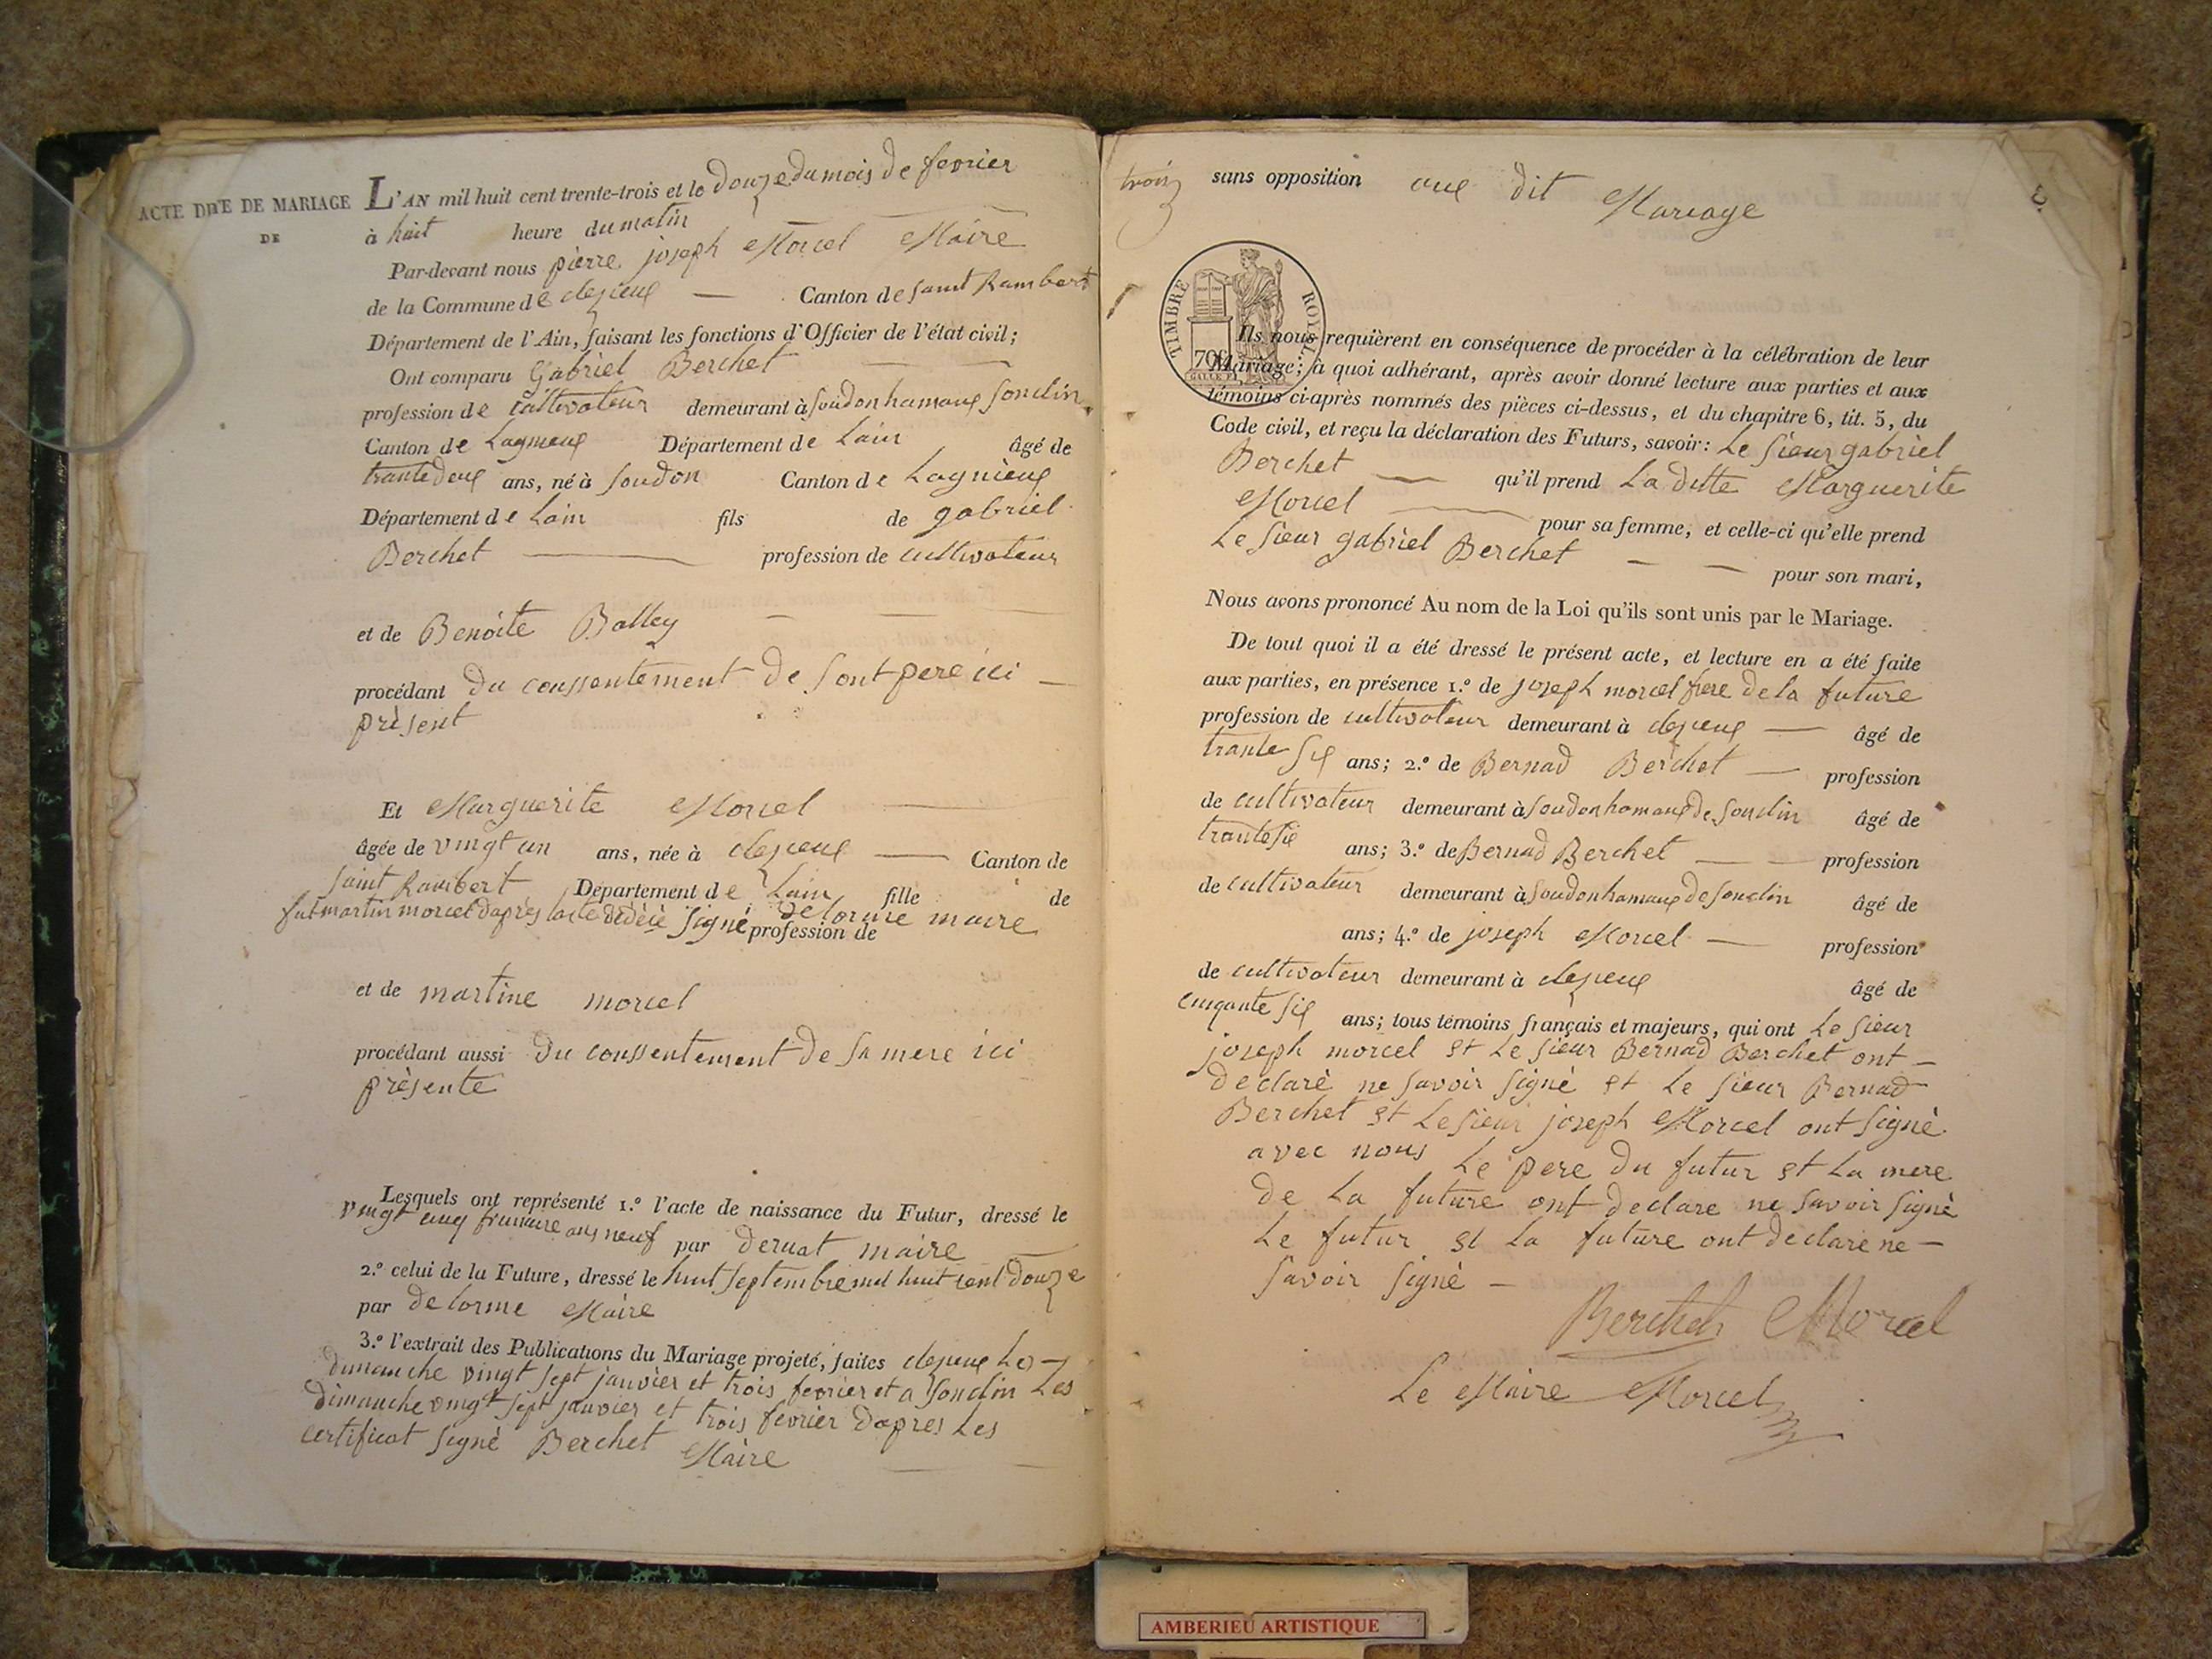 ACTE DE MARIAGE
DE
L'AN mil huit cent trente-trois et le douze du mois de fevrier
à huit heure du matin
Par-devant nous pierre joseph Morcel Maire
de la Commune de clezieux — Canton de saint Rambert
Département de l'Ain, faisant les fonctions d'Officier de l'état civil;
Ont comparu Gabriel Berchet
profession de cultivateur demeurant à Soudon hamaux Sonclin
Canton de Lagnieux Département de Lain âgé de
trante deux ans, né à Soudon Canton de Lagnieux
Département de Lain fils de gabriel
Berchet profession de cultivateur
et de Benoite Balley
procédant du conssentement de sont pere ici
présent
Et Marguerite Morcel
âgée de vingt un ans, née à clezieux Canton de
saint Rambert Département de Lain fille de
fut martin morcel daprès lacte de décè signé delorme maire
profession de
et de martine morcel
procédant aussi du conssentement de sa mere ici
présente
Lesquels ont représenté 1.º l'acte de naissance du Futur, dressé le
vingt cinq frimaire ans neuf par deruat maire
2.º celui de la Future, dressé le huit septembre mil huit cent douze
par delorme Maire
3.º l'extrait des Publications du Mariage projeté, faites clezieux Les
dimanche vingt sept janvier et trois fevrier et a Sonclin Les
dimanche vingt sept janvier et trois fevrier dapres Les
certificat signé Berchet Maire
trois
sans opposition aux dit Mariage
TIMBRE ROYAL
70
Ils nous requièrent en conséquence de procéder à la célébration de leur
Mariage; à quoi adhérant, après avoir donné lecture aux parties et aux
témoins ci-après nommés des pièces ci-dessus, et du chapitre 6, tit. 5, du
Code civil, et reçu la déclaration des Futurs, savoir: Le sieur gabriel
Berchet qu'il prend La ditte Marguerite
Morcel pour sa femme, et celle-ci qu'elle prend
Le sieur gabriel Berchet — — pour son mari,
Nous avons prononcé Au nom de la Loi qu'ils sont unis par le Mariage.
De tout quoi il a été dressé le présent acte, et lecture en a été faite
aux parties, en présence 1.º de joseph morcel frere de la future
profession de cultivateur demeurant à clezieux — âgé de
trante six ans; 2.º de Bernad Berchet — profession
de cultivateur demeurant à Soudon hamaux de Sonclin âgé de
trante six ans; 3.º de Bernad Berchet — — profession
de cultivateur demeurant à Soudon hamaux de Sonclin âgé de
ans; 4.º de joseph Morcel — profession
de cultivateur demeurant à clezieux âgé de
cinqante six ans; tous témoins français et majeurs, qui ont Le sieur
joseph morcel et Le sieur Bernad Berchet ont —
declaré ne savoir signé et Le sieur Bernad
Berchet et Le sieur joseph Morcel ont signé
avec nous Le pere du futur et La mere
de La future ont declare ne savoir signé
Le futur et La future ont declare ne —
savoir signé —
Berchet Morcel
Le Maire Morcel
AMBERIEU ARTISTIQUE